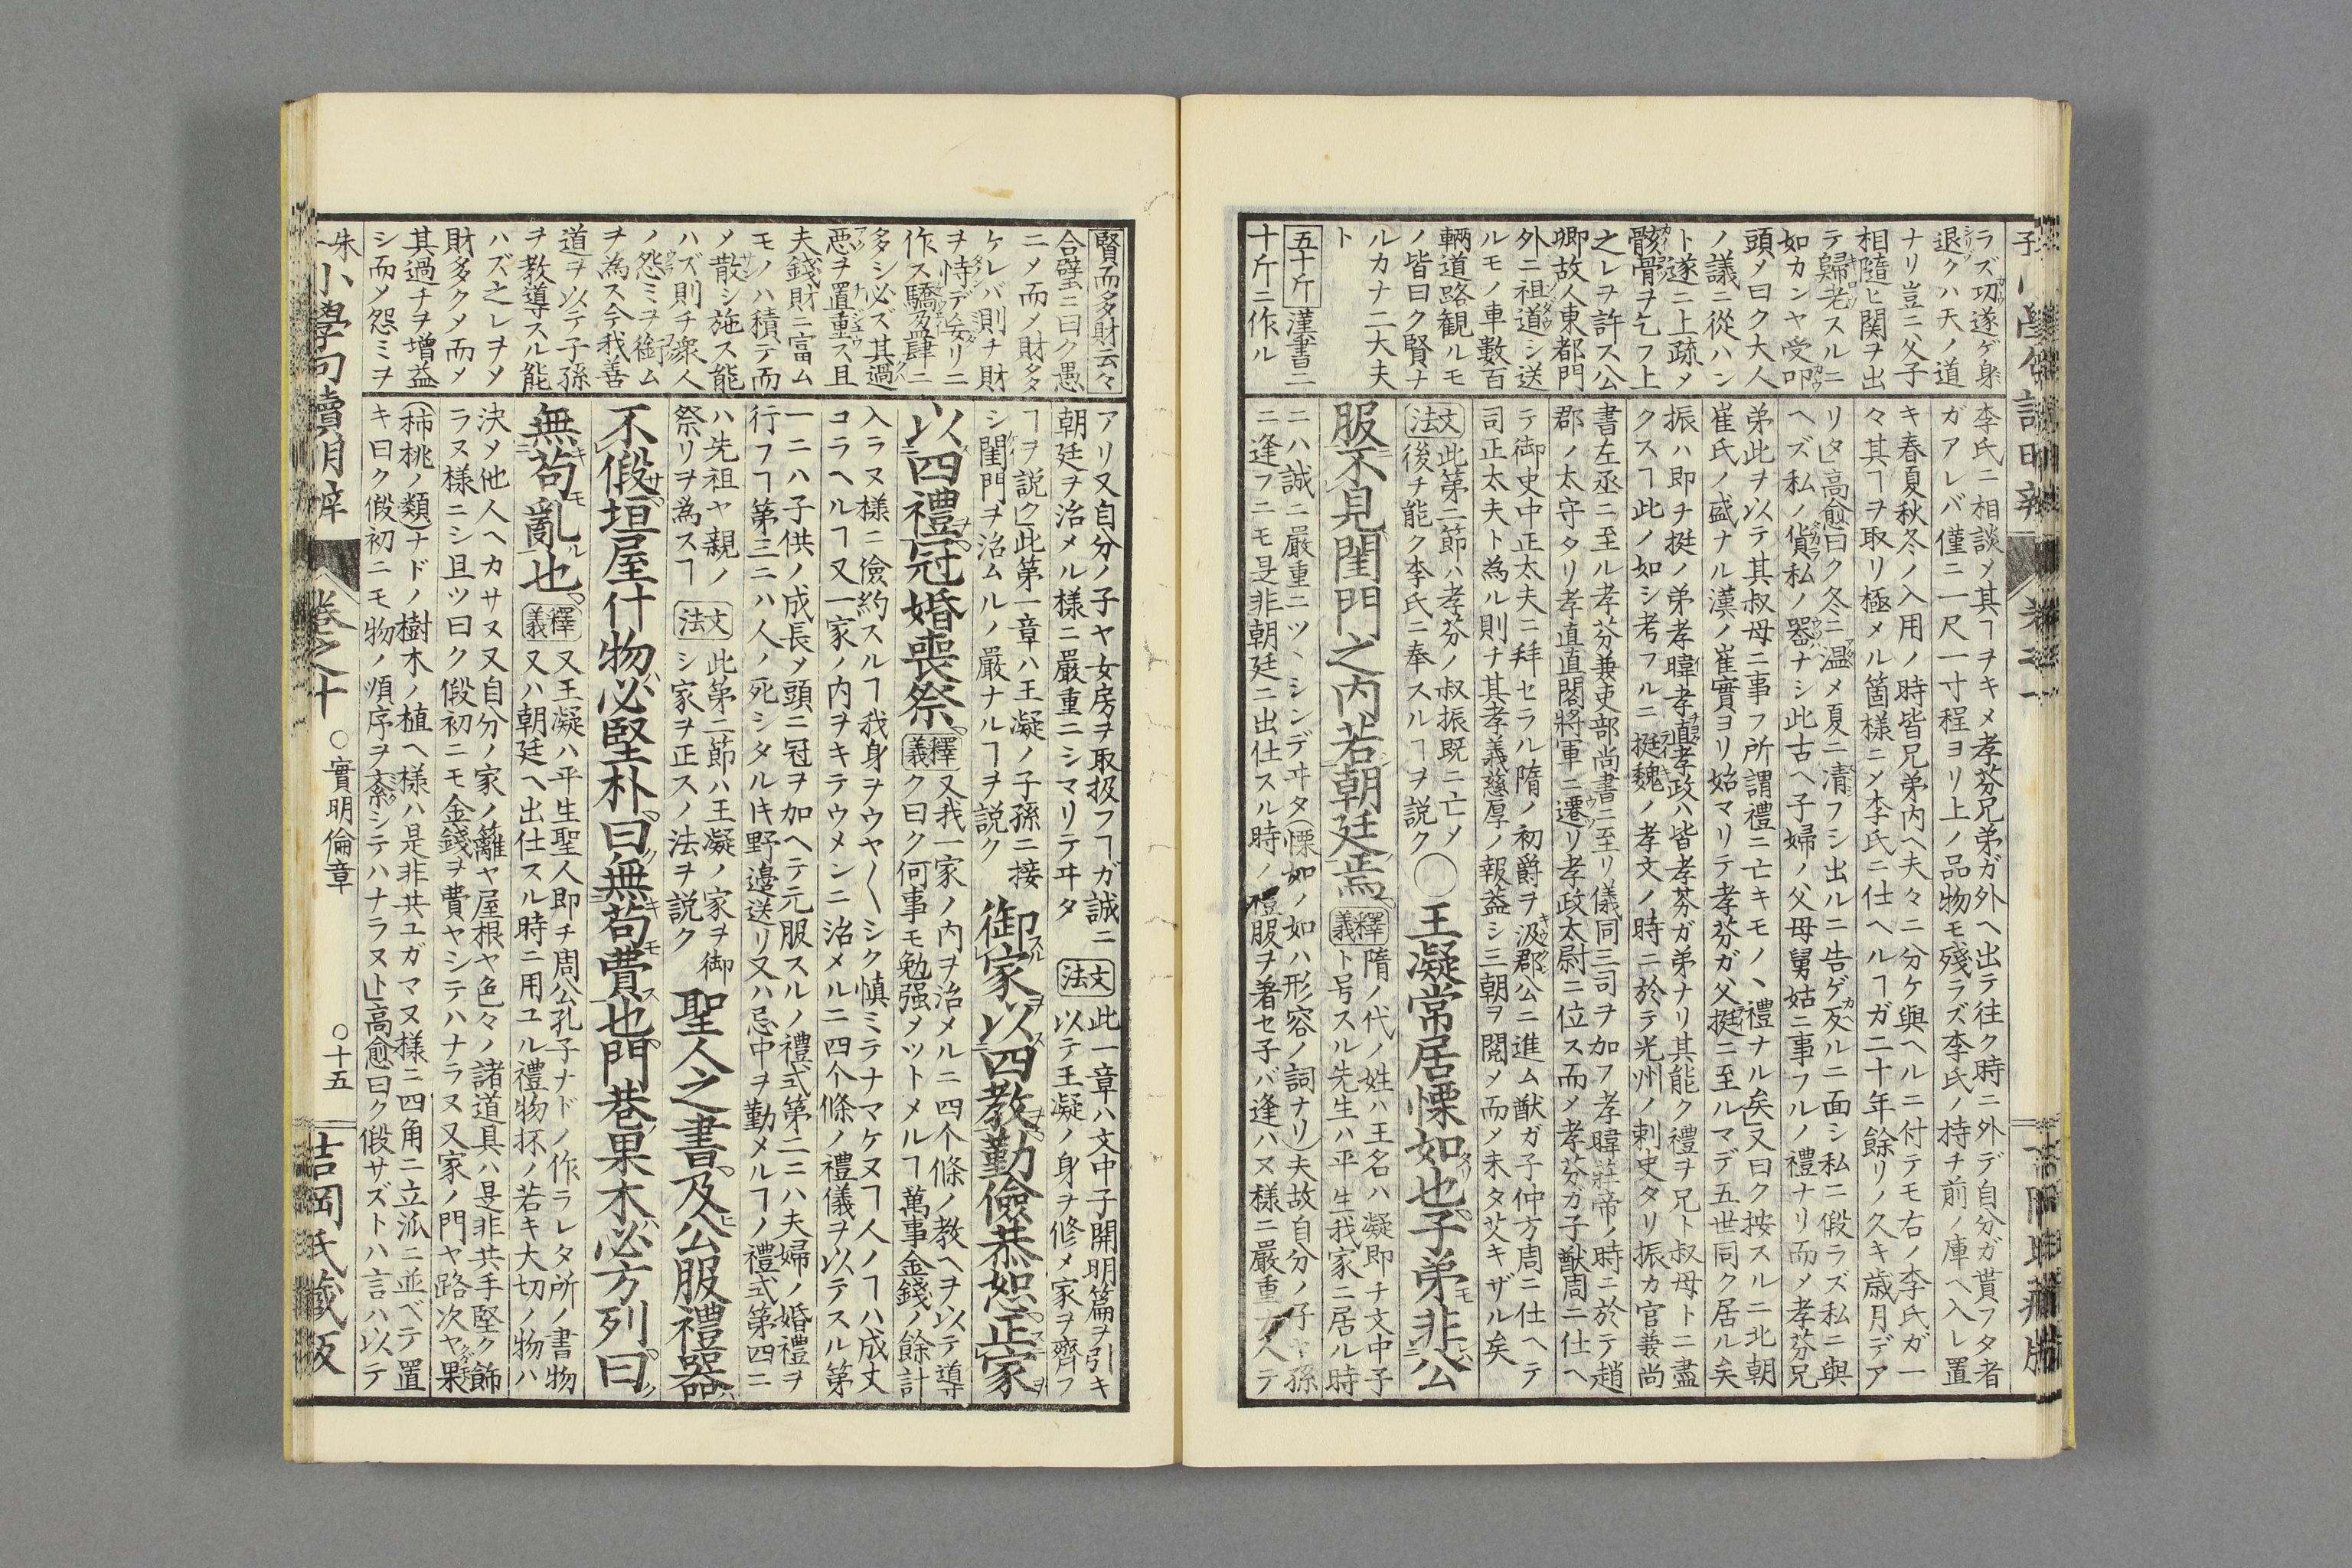 ラズ功遂ゲ身
退クハ天ノ道
ナリ豈ニ父子
相隨ヒ関ヲ出
テ歸老スルニ
如カンヤ受叩
頭メ曰ク大人
ノ議ニ從ハン
ト遂ニ上疏メ
骸骨ヲ乞フ上
之レヲ許ス公
卿故人東都門
外ニ祖道シ送
ルモノ車數百
輛道路観ルモ
ノ皆曰ク賢ナ
ルカナ二大夫
ト
五十斤漢書二
十斤ニ作ル
李氏ニ相談メ其ヿヲキメ孝芬兄弟ガ外ヘ出テ往ク時ニ外デ自分ガ貰フタ者
ガアレバ僅ニ一尺一寸程ヨリ上ノ品物モ殘ラズ李氏ノ持チ前ノ庫ヘ入レ置
キ春夏秋冬ノ入用ノ時皆兄弟内ヘ夫々ニ分ケ與ヘルニ付テモ右ノ李氏ガ一
々其ヿヲ取リ極メル箇様ニメ李氏ニ仕ヘルヿガ二十年餘リノ久キ歳月デア
リタ」高愈曰ク冬ニ温メ夏ニ清フシ出ルニ告ゲ反ルニ面シ私ニ假ラズ私ニ與
ヘズ私ノ貨私ノ器ナシ此古ヘ子婦ノ父母舅姑ニ事フルノ禮ナリ而メ孝芬兄
弟此ヲ以テ其叔母ニ事フ所謂禮ニ亡キモノヽ禮ナル矣」又曰ク按スルニ北朝
崔氏ノ盛ナル漢ノ崔實ヨリ始マリテ孝芬ガ父挺ニ至ルマデ五世同ク居ル矣
振ハ即チ挺ノ弟孝暐孝直孝政ハ皆孝芬ガ弟ナリ其能ク禮ヲ兄ト叔母トニ盡
クスヿ此ノ如シ考フルニ挺魏ノ孝文ノ時ニ於テ光州ノ刺史タリ振カ官兼尚
書左丞ニ至ル孝芬兼吏部尚書ニ至リ儀同三司ヲ加フ孝暐莊帝ノ時ニ於テ趙
郡ノ太守タリ孝直直閣將軍ニ遷リ孝政太尉ニ位ス而メ孝芬ガ子猷周ニ仕ヘ
テ御史中正太夫ニ拜セラル隋ノ初爵ヲ汲郡公ニ進ム猷ガ子仲方周ニ仕ヘテ
司正太夫ト為ル則チ其孝義慈厚ノ報益シ三朝ヲ閲メ而メ未タ艾キザル矣
文法此第二節ハ孝芬ノ叔振既ニ亡メ
後チ能ク李氏ニ奉スルヿヲ説ク
〇王凝常居慄如也子弟非公
服不見閨門之内若朝廷焉
釋義隋ノ代ノ姓ハ王名ハ凝即チ文中子
ト号スル先生ハ平生我家ニ居ル時
ニハ誠ニ嚴重ニツヽシンデヰタ(慄如ノ如ハ形容ノ詞ナリ)夫故自分ノ子ヤ孫
ニ逢フニモ是非朝廷ニ出仕スル時ノ禮服ヲ著セ子バ逢ハヌ様ニ嚴重
賢而多財云々
合璧ニ曰ク愚
ニメ而メ財多
ケレバ則チ財
ヲ恃デ妄リニ
作ス驕肆ニ
多シ必ズ其過
悪ヲ置重ス且
夫錢財ニ富ム
モノハ積テ而
メ散シ施ス能
ハズ則チ衆人
ノ怨ミヲ銜ム
ヲ為ス今我善
道ヲ以テ子孫
ヲ教導スル能
ハズ之レヲメ
財多クメ而メ
其過チヲ增益
シ而メ怨ミヲ
アリ又自分ノ子ヤ女房ヲ取扱フヿガ誠ニ
朝廷ヲ治メル様ニ嚴重ニシマリテヰタ
文法此一章ハ文中子開明篇ヲ引キ
以テ王凝ノ身ヲ修メ家ヲ齊フ
ヿヲ説ク」此第一章ハ王凝ノ子孫ニ接
シ閨門ヲ治ムルノ嚴ナルヿヲ説ク
御家以四教勤儉恭恕正家
以四禮冠婚喪祭
釋義又我一家ノ内ヲ治メルニ四个條ノ教ヘヲ以テ導
ク曰ク何事モ勉强メツトメルヿ萬事金錢ノ餘計
入ラヌ様ニ儉約スルヿ我身ヲウヤ〱シク慎ミテナマケヌヿ人ノヿハ成丈
コラヘルヿ又一家ノ内ヲキテウメンニ治メルニ四个條ノ禮儀ヲ以テスル第
一ニハ子供ノ成長メ頭ニ冠ヲ加ヘテ元服スルノ禮式第二ニハ夫婦ノ婚禮ヲ
行フヿ第三ニハ人ノ死シタル𪜈野邉送リ又ハ忌中ヲ勤メルヿノ禮式第四ニ
ハ先祖ヤ親ノ
祭リヲ為スヿ
文法此第二節ハ王凝ノ家ヲ御
シ家ヲ正スノ法ヲ説ク
聖人之書及公服禮器
不假垣屋什物必堅朴曰無苟費也門巷果木必方列曰
無苟亂也
釋義又王凝ハ平生聖人即チ周公孔子ナドノ作ラレタ所ノ書物
又ハ朝廷ヘ出仕スル時ニ用ユル禮物抔ノ若キ大切ノ物ハ
決メ他人ヘカサヌ又自分ノ家ノ籬ヤ屋根ヤ色々ノ諸道具ハ是非共手堅ク飾
ラヌ様ニシ且ツ曰ク假初ニモ金錢ヲ費ヤシテハナラヌ又家ノ門ヤ路次ヤ果
(柿桃ノ類)ナドノ樹木ノ植ヘ様ハ是非共ユガマヌ様ニ四角ニ立派ニ並ベテ置
キ曰ク假初ニモ物ノ順序ヲ紊シテハナラヌト」高愈曰ク假サズトハ言ハ以テ
小學句讀明辨
卷之十
〇實明倫章
〇十五
吉岡氏藏版